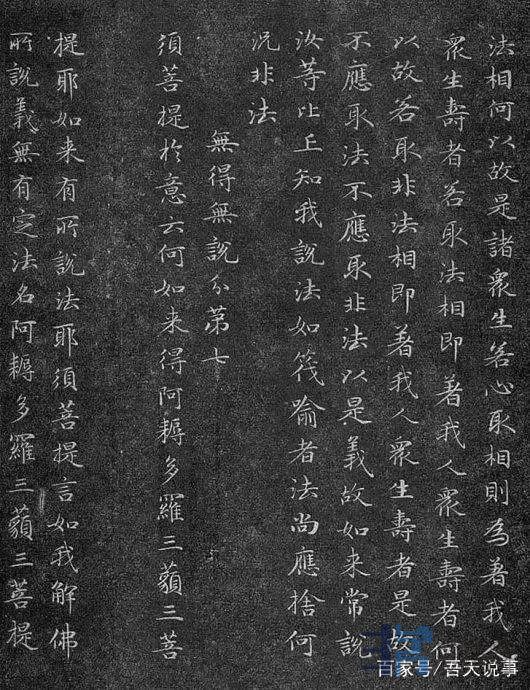 法相何以故是諸衆生若心取相則為著我人
衆生壽者若取法相即著我人衆生壽者何
以故若取非法相即著我人衆生壽者是故
不應取法不應取非法以是義故如来常說
汝等比丘知我說法如筏喻者法尚應捨何
況非法
無得無說分第七
須菩提於意云何如来得阿耨多羅三藐三菩
提耶如来有所說法耶須菩提言如我解佛
所說義無有定法名阿耨多羅三藐三菩提
百家号/吾天说事